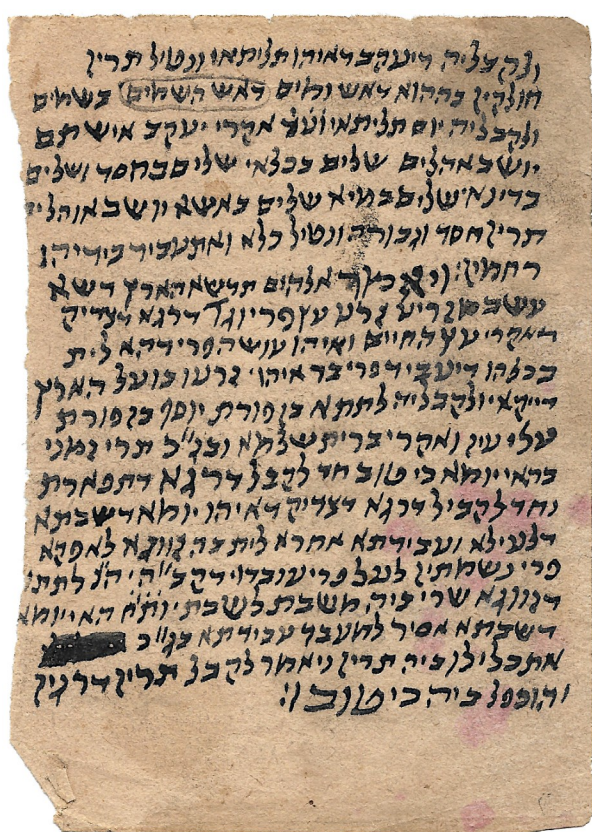 ולקבליה דיעקב דאיהו תליתאי ונטיל תרין
חולקין בההוא דאש ומים דאש השמים בשמים
ולקבליה יום תליתאי ועד אקרי יעקב איש תם
יושב אהלים שלים בכלאי שלים בחסד ושלים
בדינא שלים במיא שלים באשא יושב אוהלים
תרין חסד וגבורה ונטיל כלא ואתעביד בידיהו
רחמין: אלהים תדשא הארץ דשא
עשב מזריע זרע עץ פרי וגו' דרגא דצדיק
דאקרי עץ החיים ואיהו עושה פרי דהא לית
בכלהו דיעביד פרי בר איהו זרעו בועל הארץ
דייקא ולקבליה לתתא בן פורת יוסף בן פורת
עלי עין ואקרי ברית שלמא ובג"כ תרי זמני
בהאי יומא כי טוב חד לקבל דרגא דתפארת
וחד לקביל דרגא דצדיק דאיהו יומא דשבתא
דלעילא ועבידתא אחרא לית בה גוונא לאפקא
פרי נשמתין לעל פרי עובדוי דקב"ה
דגוונא שרי ביה משבת לשבת האי יומא
דשבתא אסיר למעבד עבידתא בג"כ
אתכלילן ביה תרין ניאמר לקבל תרין דרגין
והוכפל ביה כי טוב: